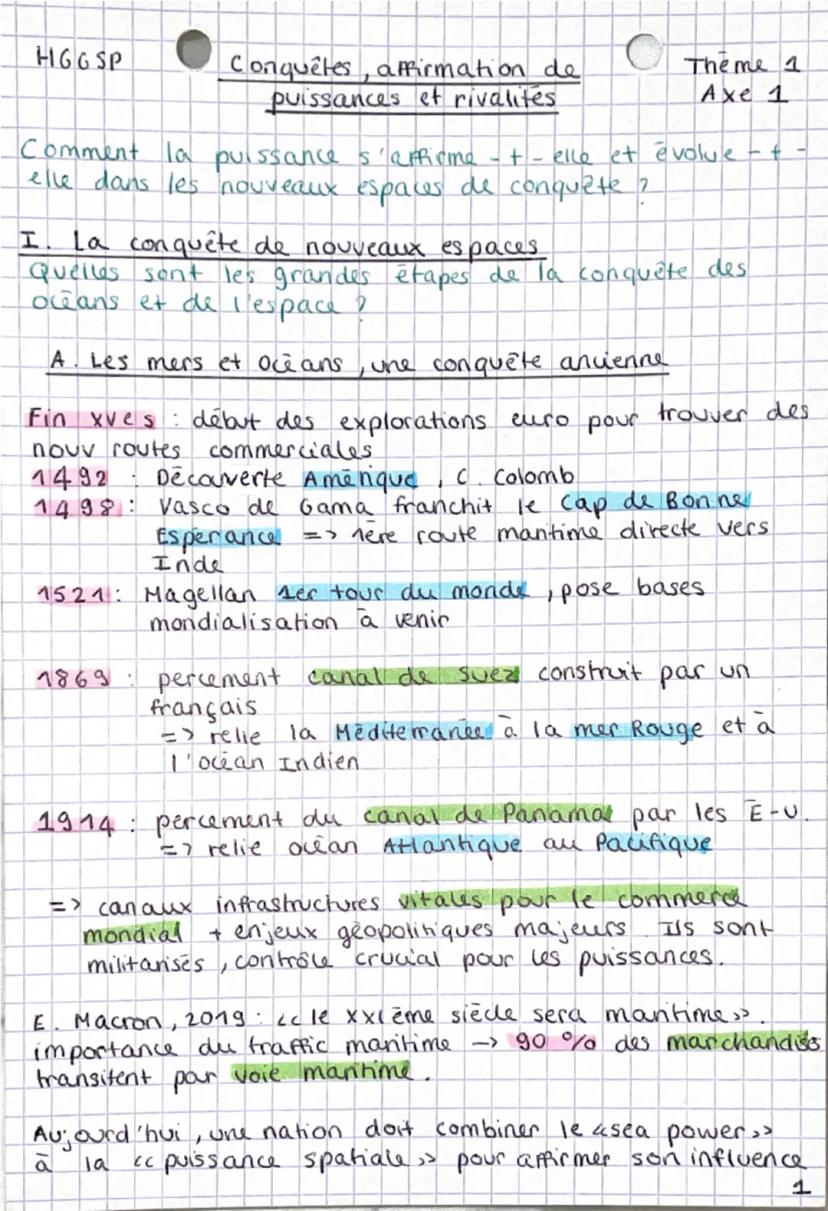 HGGSP
Conquêtes, affirmation de
puissances et rivalités
Thème 1
Axe 1
Comment la puissance s'affirme-t-elle et évolue-t-
elle dans les nouveaux espaces de conquête ?
I. La conquête de nouveaux espaces
Quelles sont les grandes étapes de la conquête des
océans et de l'espace ?
A. Les mers et océans, une conquête ancienne
Fin XVe s : début des explorations euro pour trouver des
nouv routes commerciales
1492 : Découverte Amérique, C. Colomb
1498 : Vasco de Gama franchit le cap de Bonne
Espérance => 1ère route maritime directe vers
Inde
1521 : Magellan 1er tour du monde, pose bases
mondialisation à venir
1869 : percement canal de Suez construit par un
français
=> relie la Méditerranée à la mer Rouge et à
l'océan Indien
1914 : percement du canal de Panama par les É-U.
=> relie océan Atlantique au Pacifique
=> canaux infrastructures vitales pour le commerce
mondial + enjeux géopolitiques majeurs. Ils sont
militarisés, contrôle crucial pour les puissances.
E. Macron, 2019 : << le XXIème siècle sera maritime >>.
importance du traffic maritime -> 90 % des marchandises
transitent par voie maritime.
Aujourd'hui, une nation doit combiner le << sea power >>
à la << puissance spatiale >> pour affirmer son influence
1